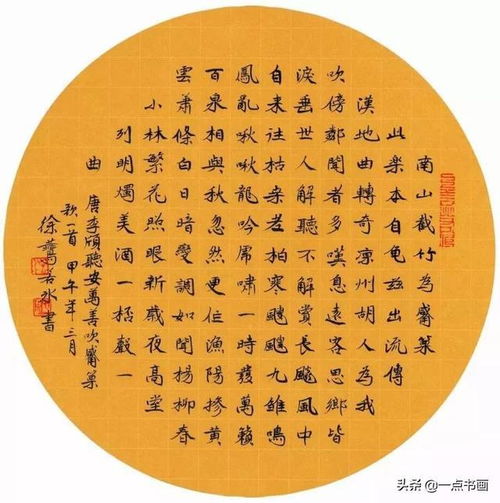 南山截竹為觱篥
此樂本自龜茲出流傳
漢地曲轉奇涼州胡人為我
吹傍鄰聞者多嘆息遠客思鄉皆
淚垂世人解聽不解賞長飈風中
自來往枯桑老柏寒颼飀九雛鳴
鳳亂啾啾龍吟虎嘯一時發萬籟
百泉相與秋忽然更作漁陽摻黃
雲蕭條白日暗變調如聞楊柳春
上林繁花照眼新歲夜高堂
列明燭美酒一杯聲一
曲
唐李頎聽安萬善吹觱篥
歌一首 甲午年三月
徐 書
头条 @一点书画